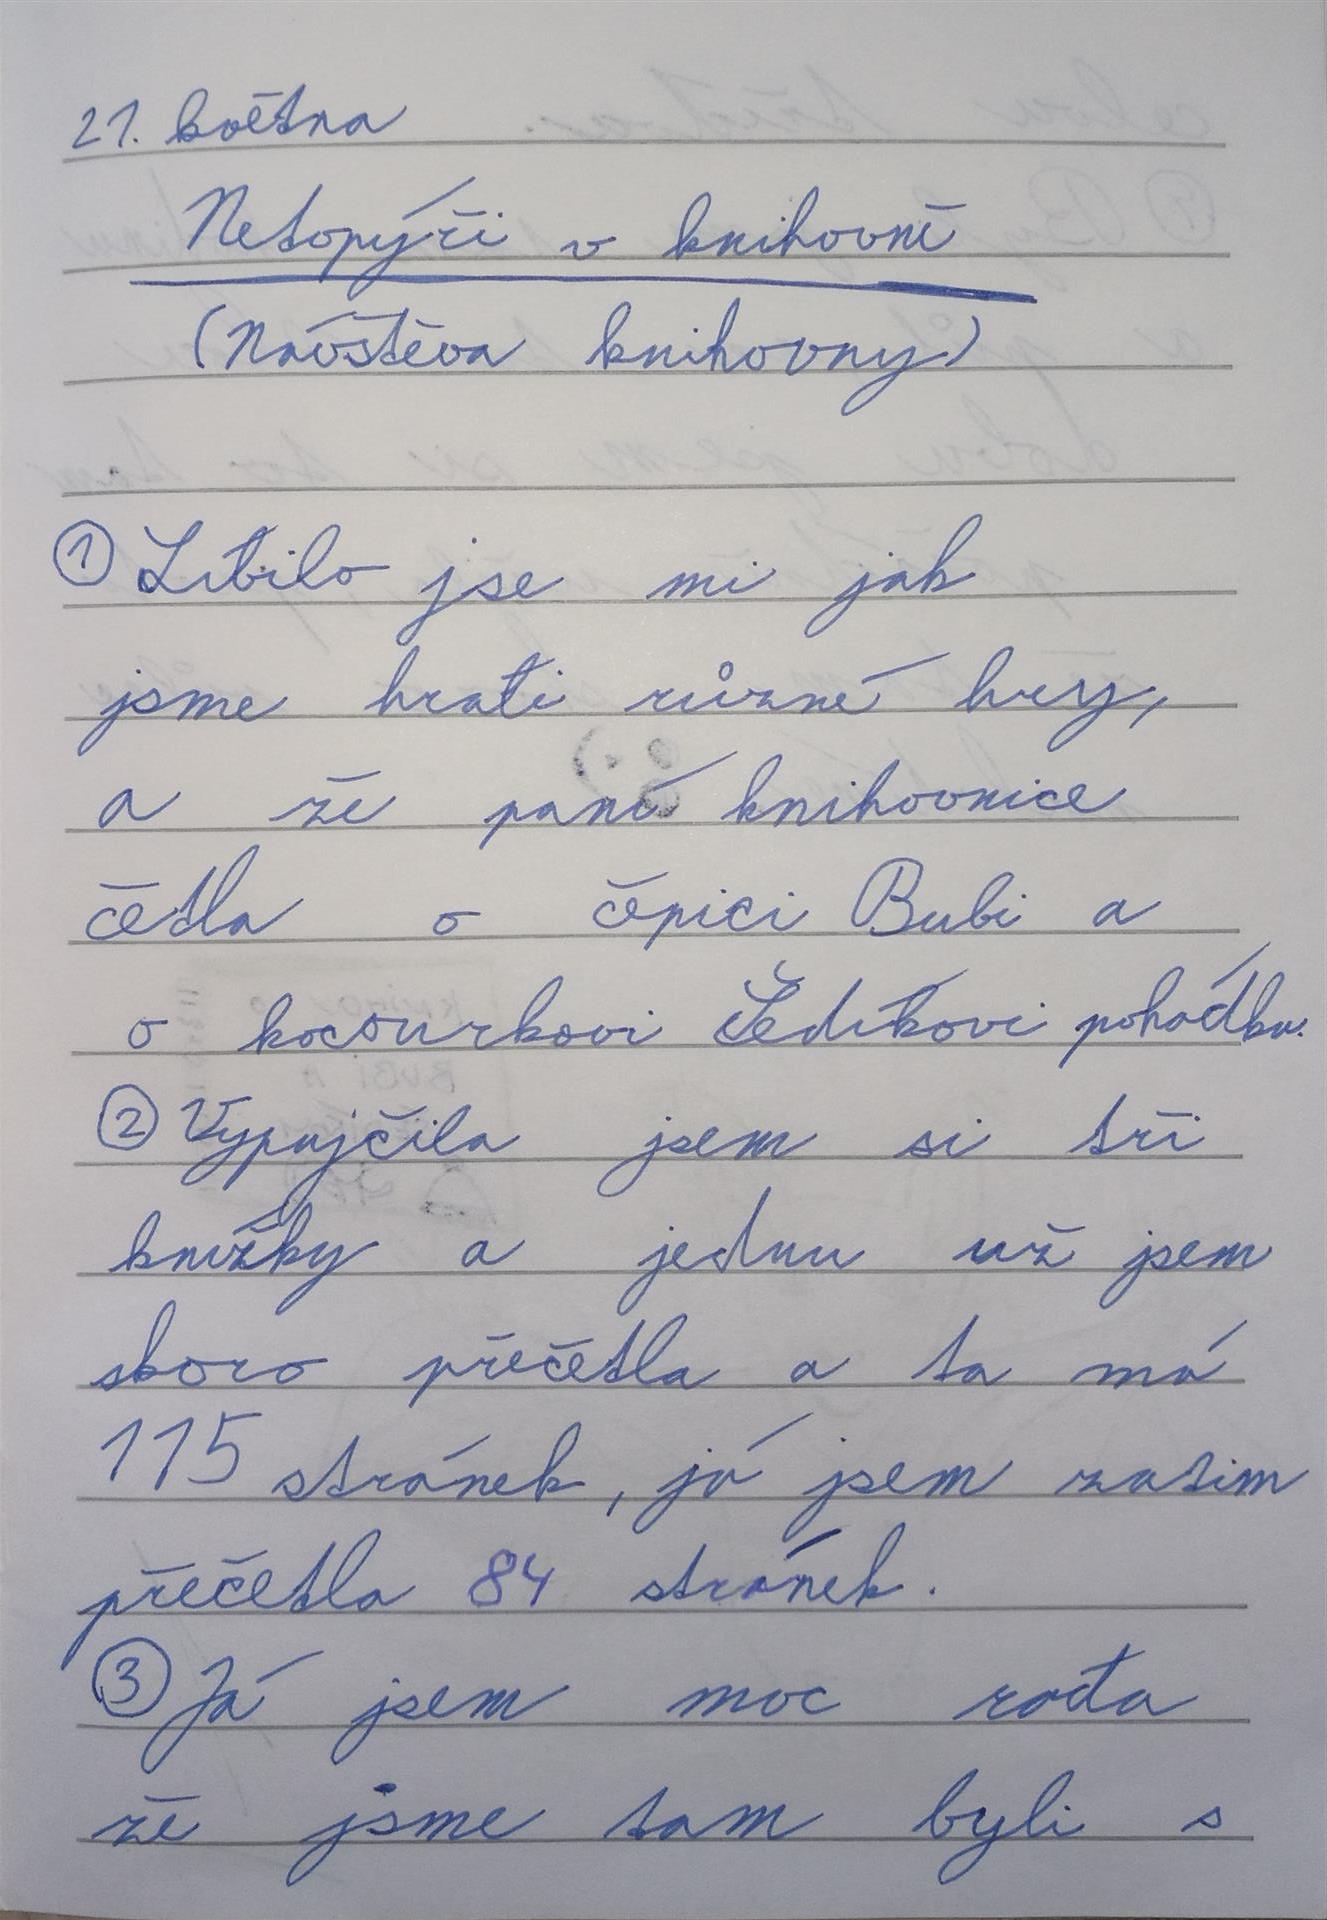 21. května
Netopýři v knihovně
(Návštěva knihovny)
① Líbilo jse mi jak
jsme hráli různé hry,
a že paní knihovnice
četla o čepici Bubi a
o kocourkovi Šedíkovi pohádku.
② Vypujčila jsem si tři
knížky a jednu už jsem
skoro přečetla a ta má
115 stránek, já jsem zatim
přečetla 84 stránek.
③ Já jsem moc ráda
že jsme tam byli s